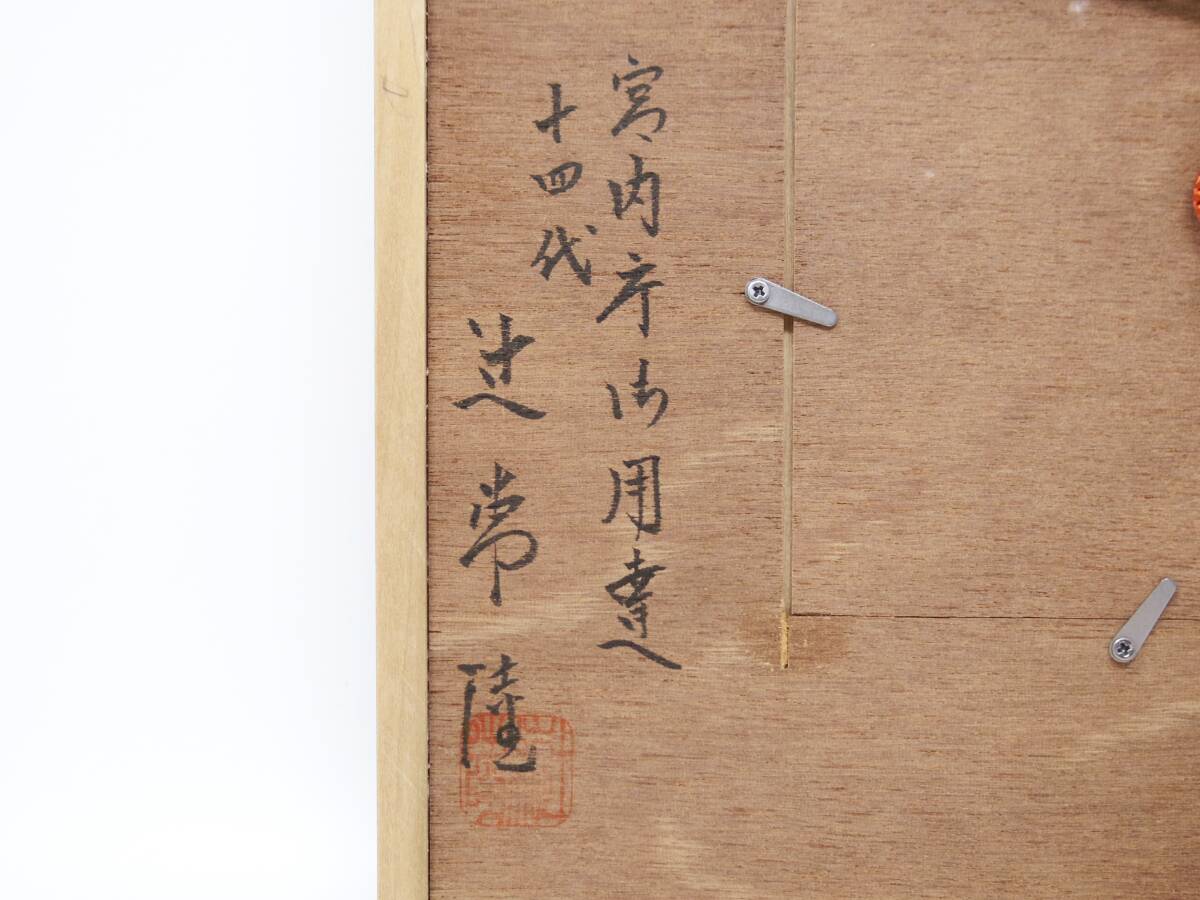 宮内庁御用達
十四代
辻常陸